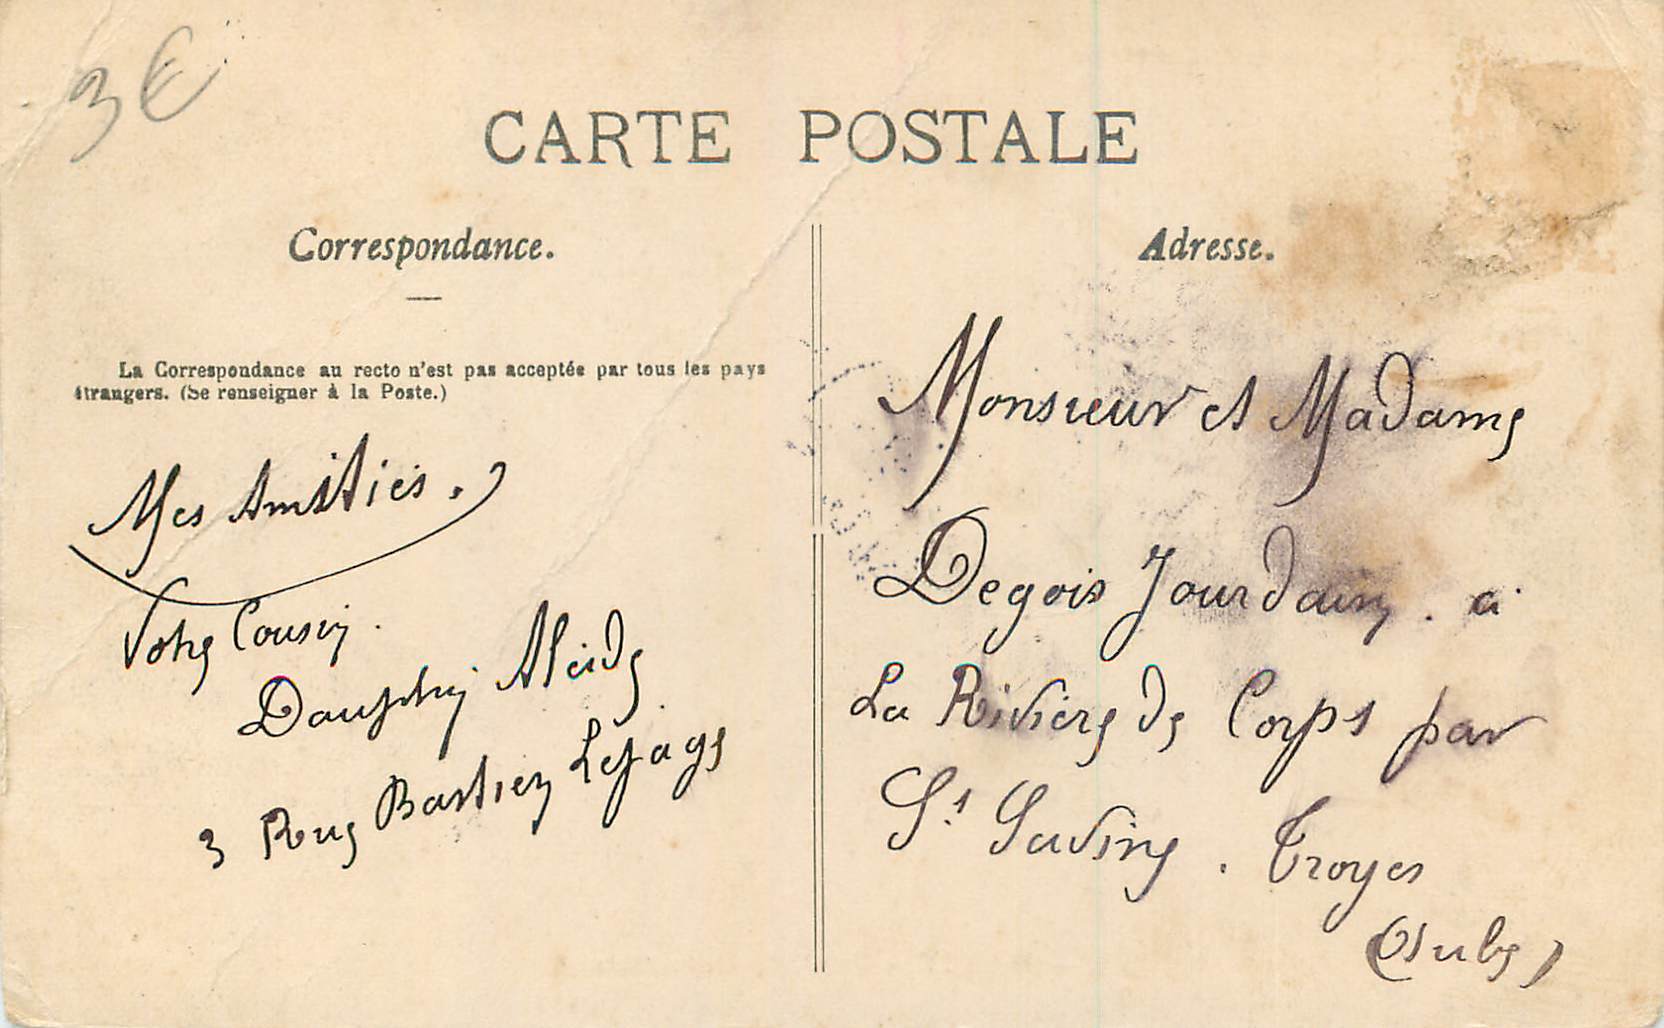 3€
CARTE POSTALE
Correspondance.
La Correspondance au recto n'est pas acceptée par tous les pays
étrangers. (Se renseigner à la Poste.)
Mes Amitiés.
Votre Cousin.
Dauphin Alcide
3 Rue Bastien Lepage
Adresse.
Monsieur et Madame
Degois Jourdain. à
La Rivière de Corps par
St Savine. Troyes
(Aube)